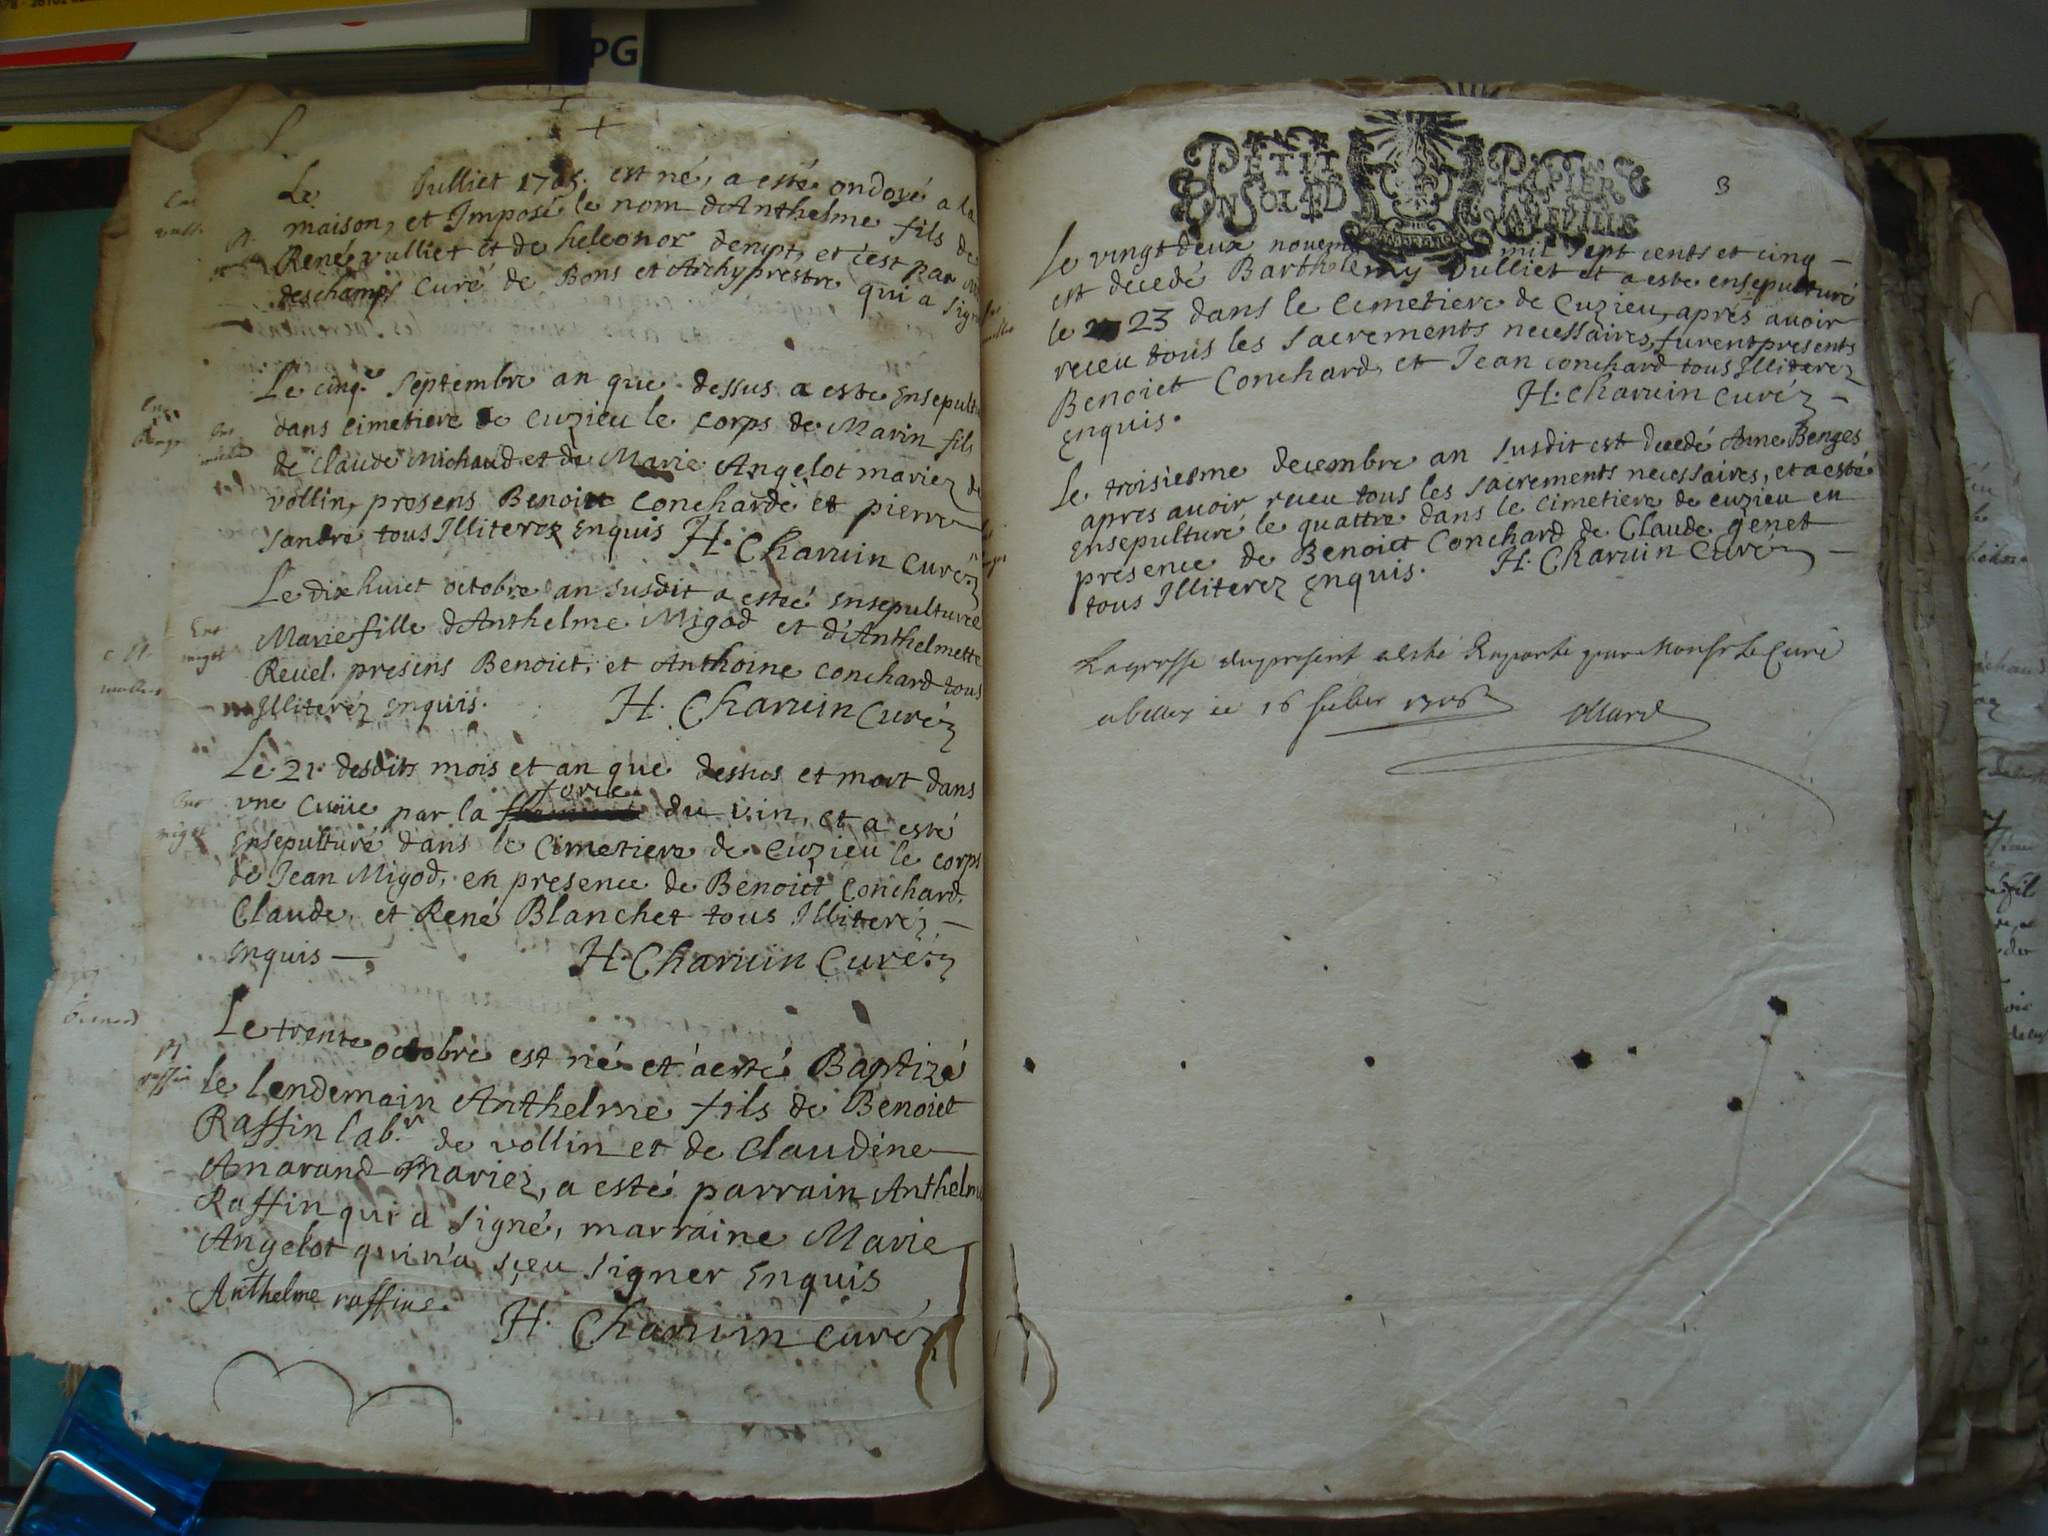 PG
Le Julliet 1705. est né, a esté ondoyé a la
maison, et Imposé le nom dAnthelme fils de
René vulliet et de heleonor dempt, et c'est par
deschamps Curé de Bons et Archyprestre qui a signé
Le cinq.e Septembre an que dessus a este Ensepult
dans cimetiere de Cuzieu le corps de Marin fils
de Claude Michaud et de Marie Angelot mariez de
vollin, presens Benoict Concharde et pierre
Sandre tous Illiterez Enquis H. Charuin Curéz
Le dix huict octobre an susdit a esteé Ensepulturée
Marie fille dAnthelme Migod et d'Anthelmette
Reuel. presens Benoict, et Anthoine conchard tous
Illitéréz Enquis. H. Charuin Curéz
Le 21. desdits mois et an que dessus et mort dans
force
vne Cuüe par la du vin, et a esté
Ensepulturé dans le Cimetiere de Cuzieu le corps
de Jean Migod, en presence de Benoict Conchard,
Claude, et René Blanchet tous Illiteréz
Enquis H. Charuin Curéz
Le trente octobre est né et a esté Baptizé
le lendemain Anthelme fils de Benoict
Raffin lab.r de vollin et de Claudine
Amarand Mariez, a esté parrain Anthelme
Raffin qui a signé, marraine Marie
Angelot qui n'a sçeu signer Enquis
Anthelme raffin
H. Charuin Curéz
PETIT PAPIER
3
Le vingt deux novem mil sept cents et cinq
est decedé Barthelemy Vulliet et a este ensepulturé
le 23 dans le Cimetiere de Cuzieu, aprés auoir
receu tous les sacrements necessaires, furent presents
Benoict Conchard, et Jean conchard tous Illiterez
Enquis. H. Charuin Curéz
Le troisiesme decembre an susdit est decedé Anne Benges
apres auoir receu tous les sacrements necessaires, et a esté
Ensepulturé le quattre dans le cimetiere de cuzieu en
presence de Benoict Conchard de Claude genet
tous Illiterez Enquis. H. Charuin Curéz
La grosse du present a esté Raporté par Monsr Le Curé
a belley ce 16 1706